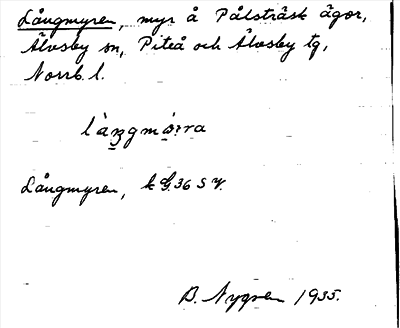 Långmyren, myr å Pålsträsk ägor,
Älvsby sn, Piteå och Älvsby tg,
Norrb. l.
Långmyren, k G. 36 S V.
B. Nygren 1935.